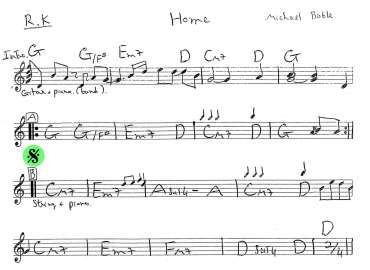 R.K Home Michael Buble
Intro. G G/F# Em7 D Cm7 D G
Guitar + piano. (band)
A
G G/F# Em7 D Cm7 D G
B
Cm7 Em7 Asus4 - A Cm7 D
String + piano.
Cm7 Em7 Fm7 Dsus4 D D 2/4